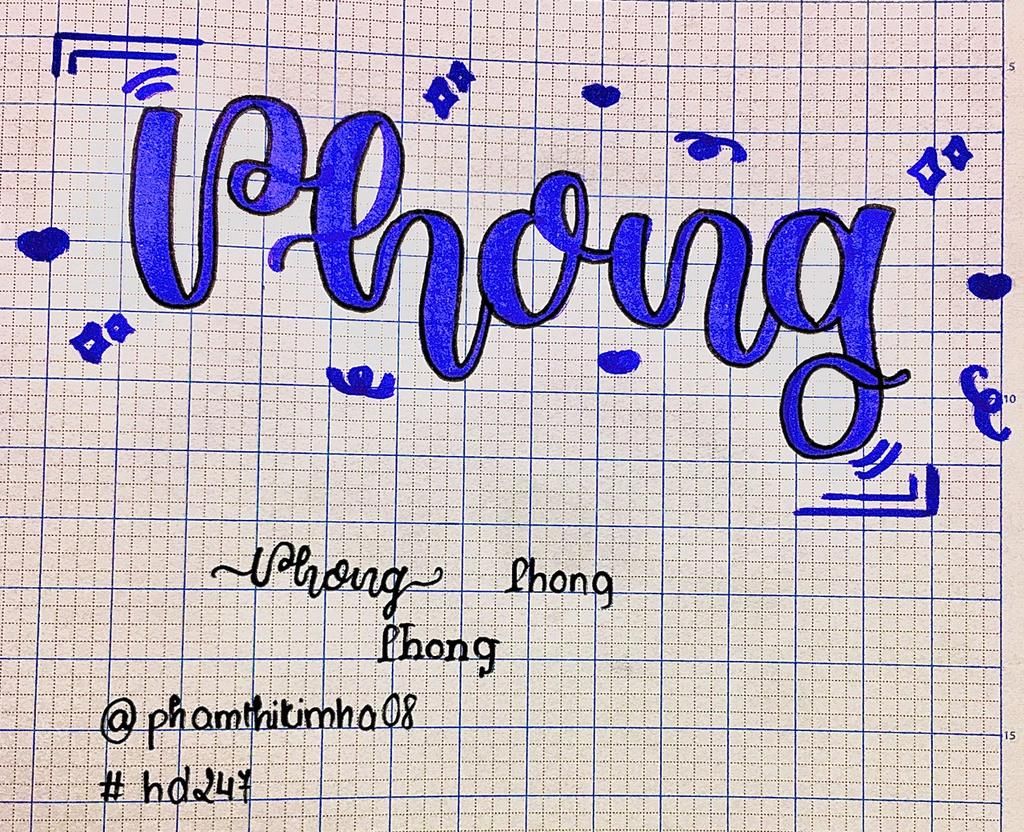 Phong
5
10
Phong Phong
Phong
@phamthikimha08
15
# hd247